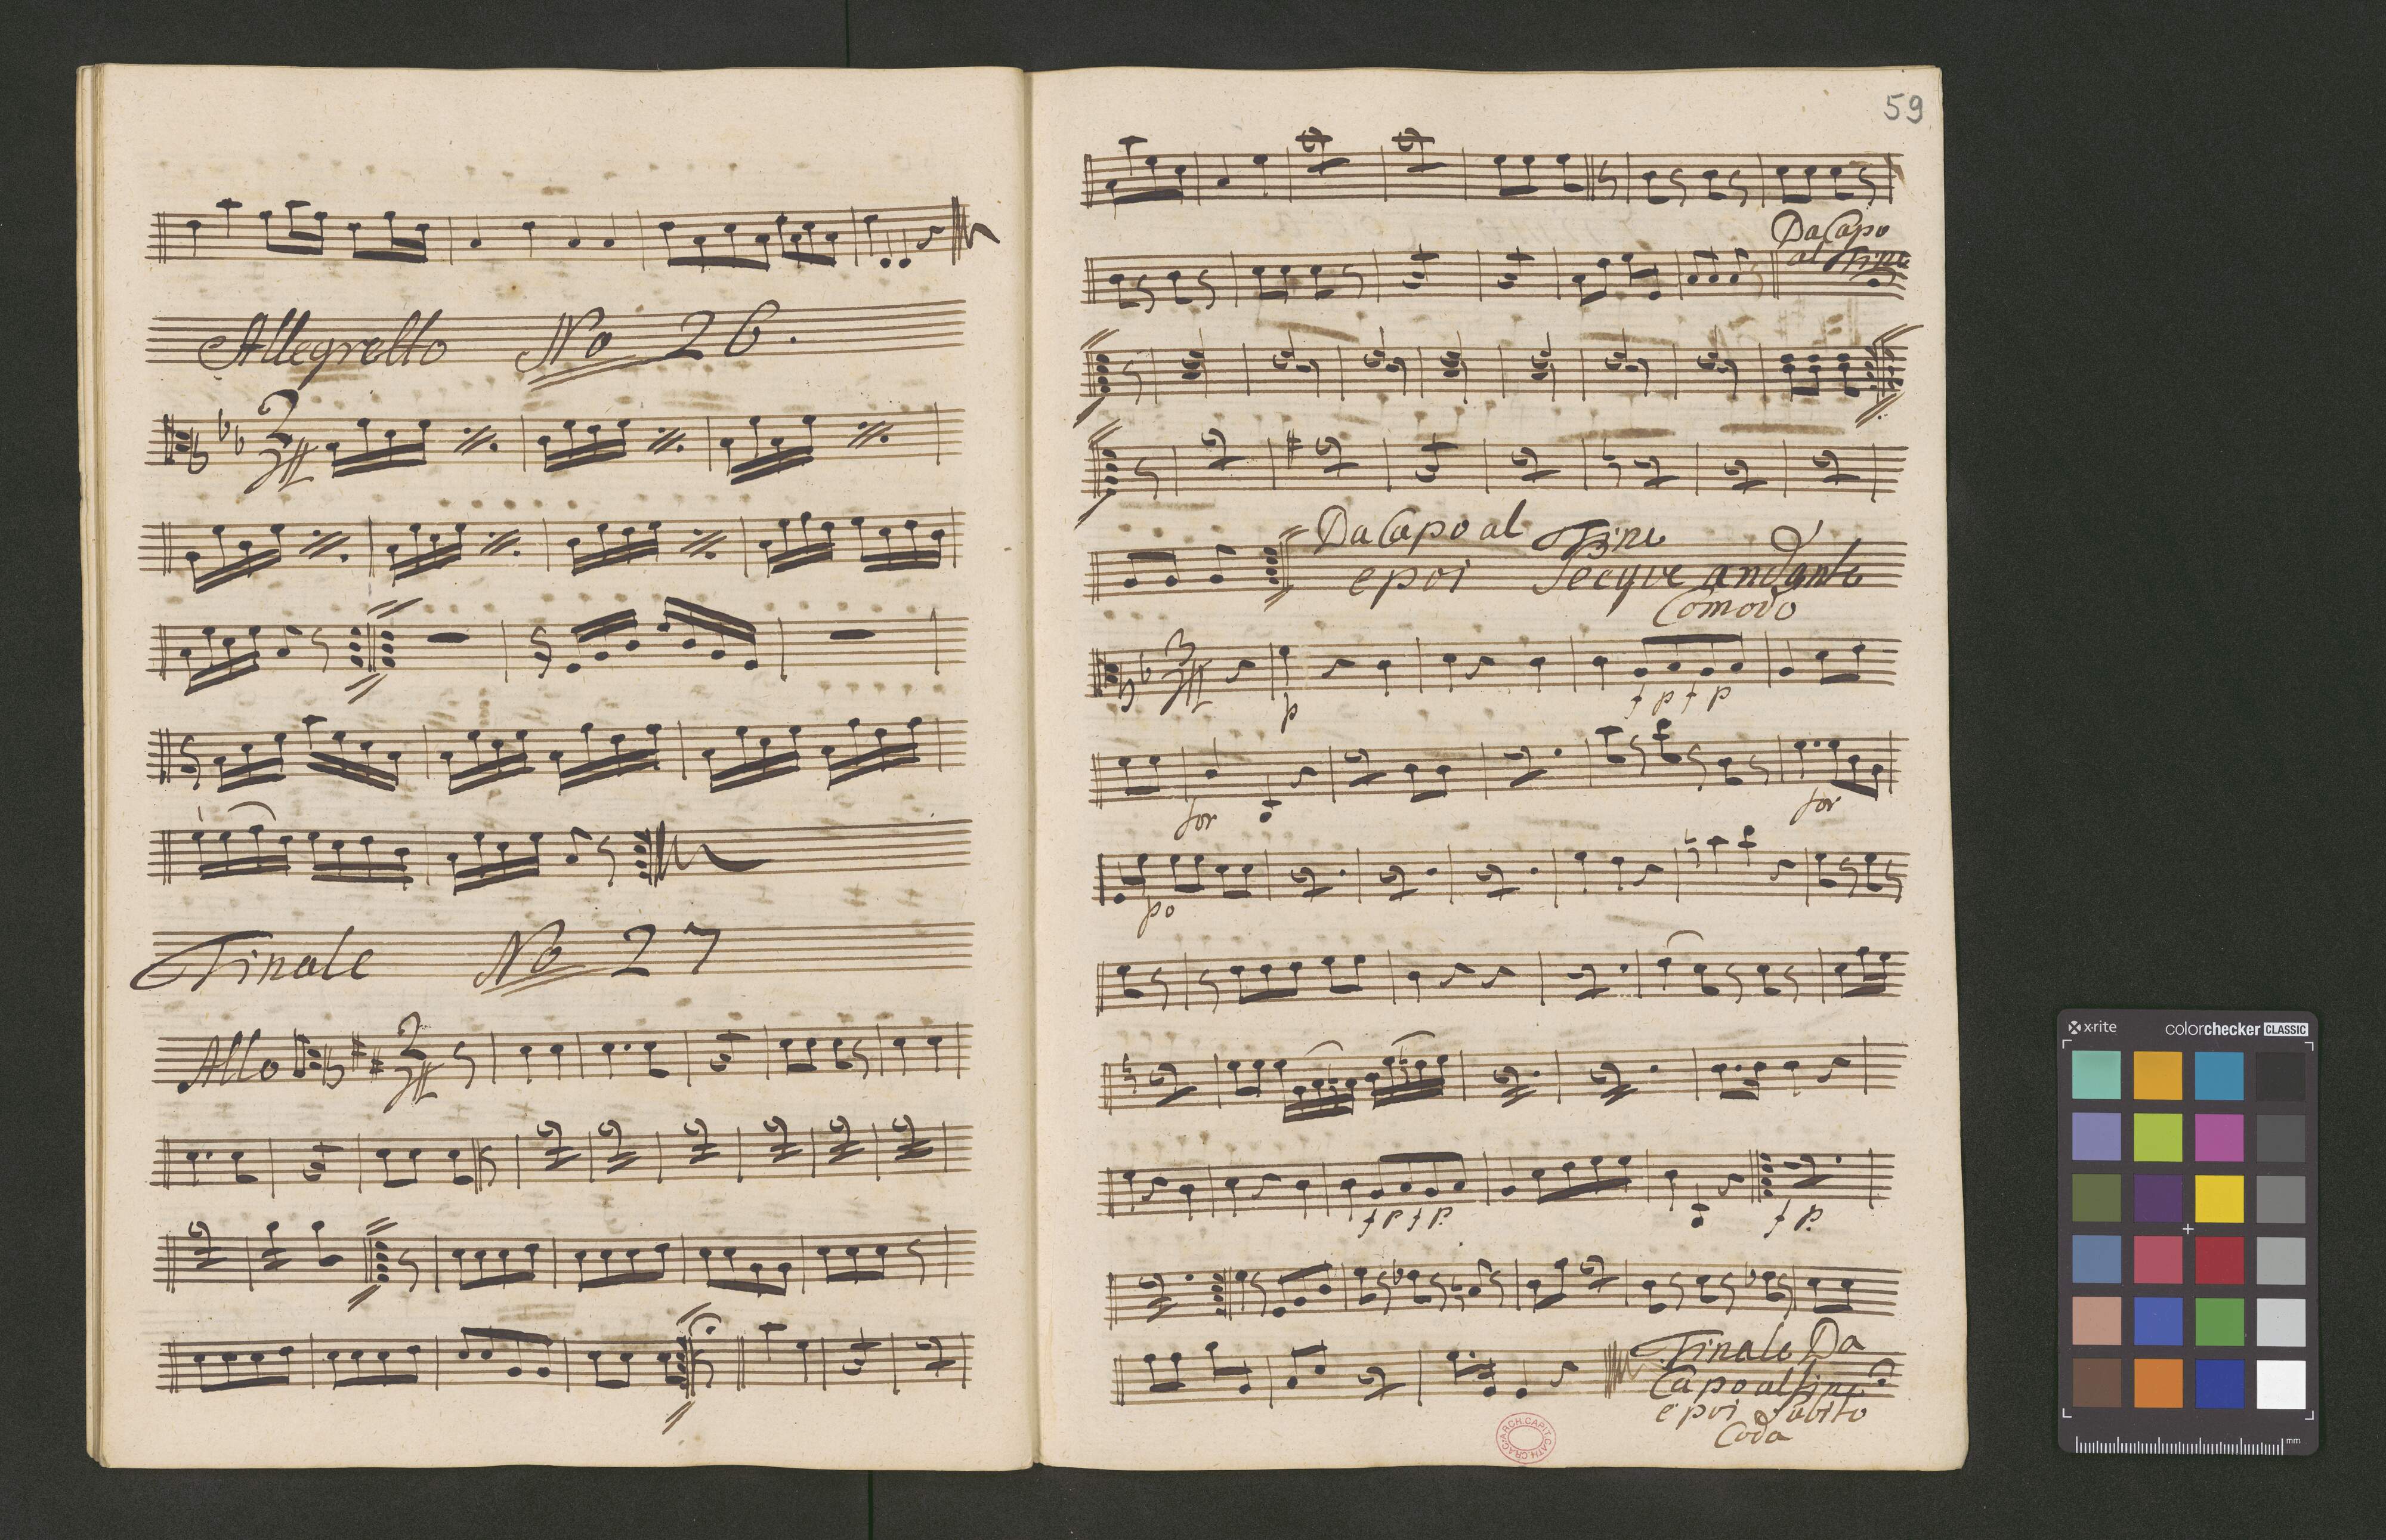 Allegretto No 26.
Finale No 27
Allo
59
Da Capo
al Fine
Da Capo al Fine
e poi Secque andante
Comodo
p
f p f p
for
for
po
f p f p.
f p.
Finale Da
Capo al fine
e poi Subito
Coda
ARCH. CAPIT. CATH. CRAC.
x-rite colorchecker CLASSIC
mm